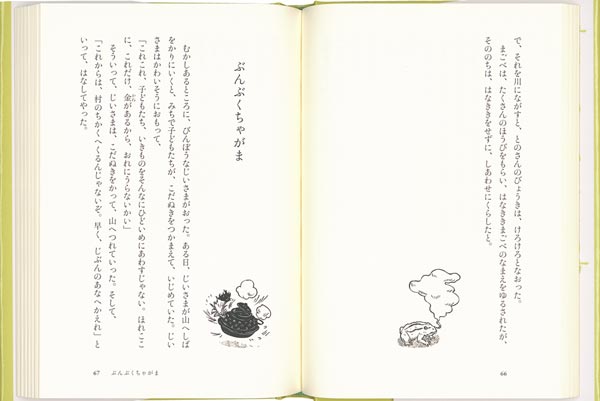 で、それを川にながすと、とのさんのびょうきは、けろけろとなおった。
まごべは、たくさんのほうびをもらい、はなききまごべのなまえをゆるされたが、
そののちは、はなききをせずに、しあわせにくらしたと。
66
ぶんぶくちゃがま
むかしあるところに、びんぼうなじいさまがおった。ある日、じいさまが山へしば
をかりにいくと、みちで子どもたちが、こだぬきをつかまえて、いじめていた。じい
さまはかわいそうにおもって、
「これこれ、子どもたち、いきものをそんなにひどいめにあわすじゃない。ほれここ
に、これだけ、金があるから、おれにうらないかい」
そういって、じいさまは、こだぬきをかって、山へつれていった。そして、
「これからは、村のちかくへくるんじゃないぞ。早く、じぶんのあなへかえれ」と
いって、はなしてやった。
67 ぶんぶくちゃがま